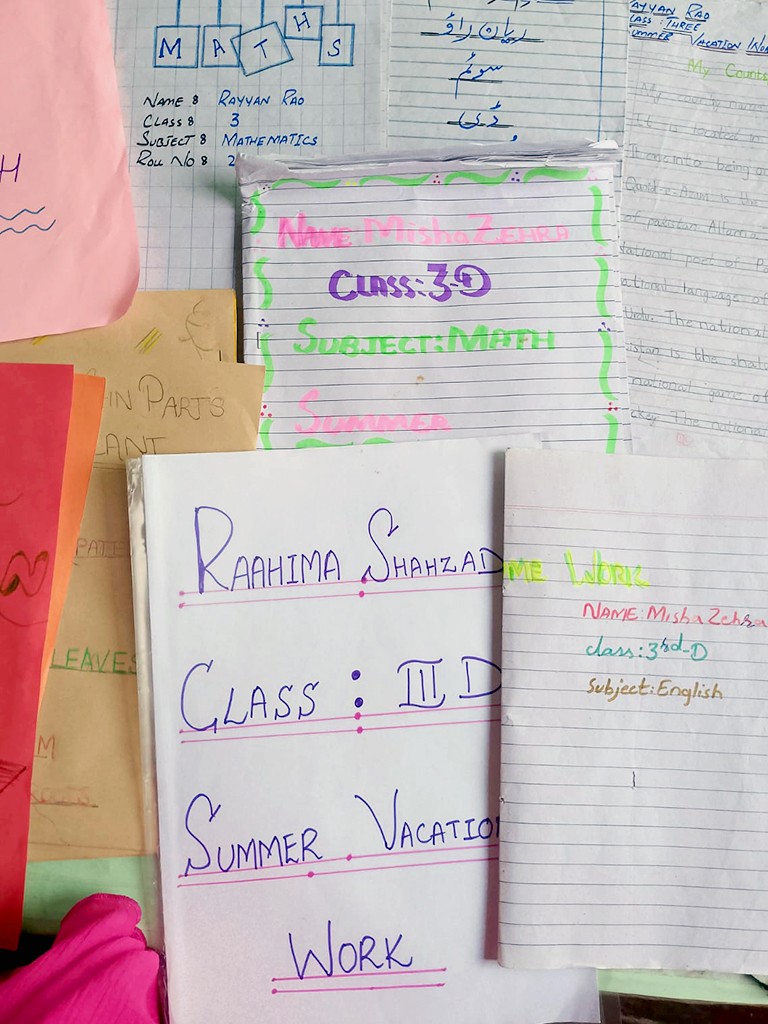 MATHS
NAME : RAYYAN RAO
CLASS : 3
SUBJECT : MATHEMATICS
ROLL NO : 2
ریان راؤ
سوئم
ڈی
RAYYAN RAO
CLASS : THREE
SUMMER VACATION WORK
My Count
My country name
It located in
Quaid-e-Azam is the
of pakistan Allama
national poet of Pa
national language of
The national
istan is the
national game of
The national
H
NAME: Misha ZEHRA
CLASS: 3-D
SUBJECT: MATH
SUMMER
IN PARTS
LANT
LEAVES
M
ROOTS
RAAHIMA SHAHZAD
CLASS : III D
SUMMER VACATION
WORK
ME WORK
NAME: Misha Zehra
class: 3rd-D
Subject: English